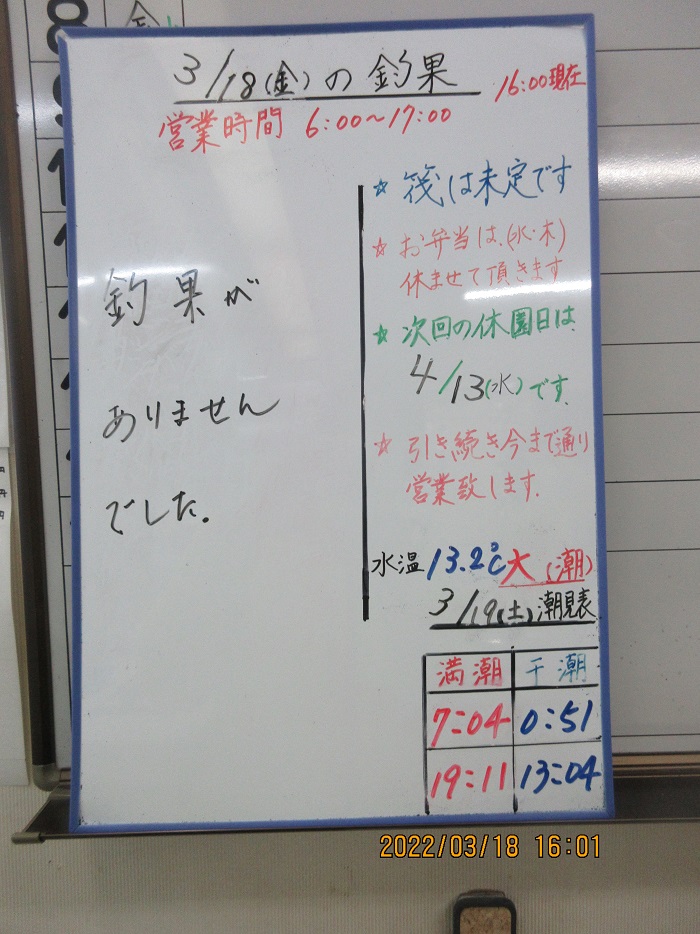 3/18(金)の釣果
16:00現在
営業時間 6:00~17:00
釣果が
ありません
でした。
☆ 筏は未定です
☆ お弁当は、(水・木)
休ませて頂きます
☆ 次回の休園日は
4/13(水)です。
☆ 引き続き今まで通り
営業致します。
水温 13.2℃ 大(潮)
3/19(土)潮見表
満潮 干潮
7:04 0:51
19:11 13:04
2022/03/18 16:01